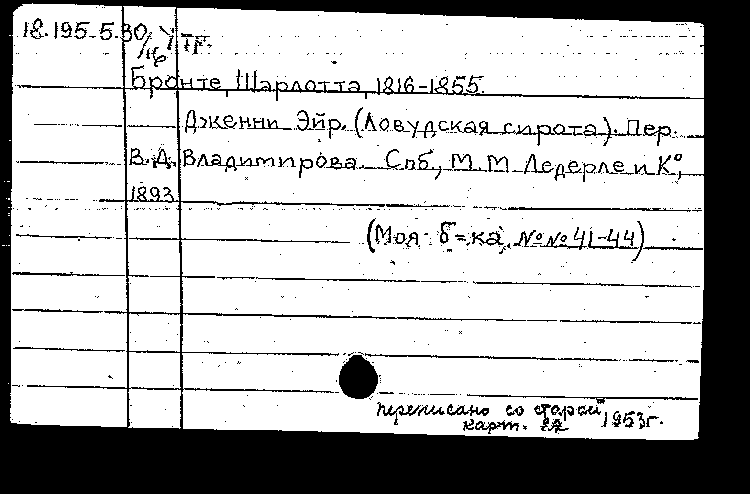 18.195.5.30/16
Бронте, Шарлотта, 1816-1855.
Дженни Эйр. (Ловудская сирота). Пер.
В.Д. Владимирова. Спб., М.М. Ледерле и К°,
1893
(Моя б=ка, №№ 41-44)
переписано со старой
карт. 1953г.